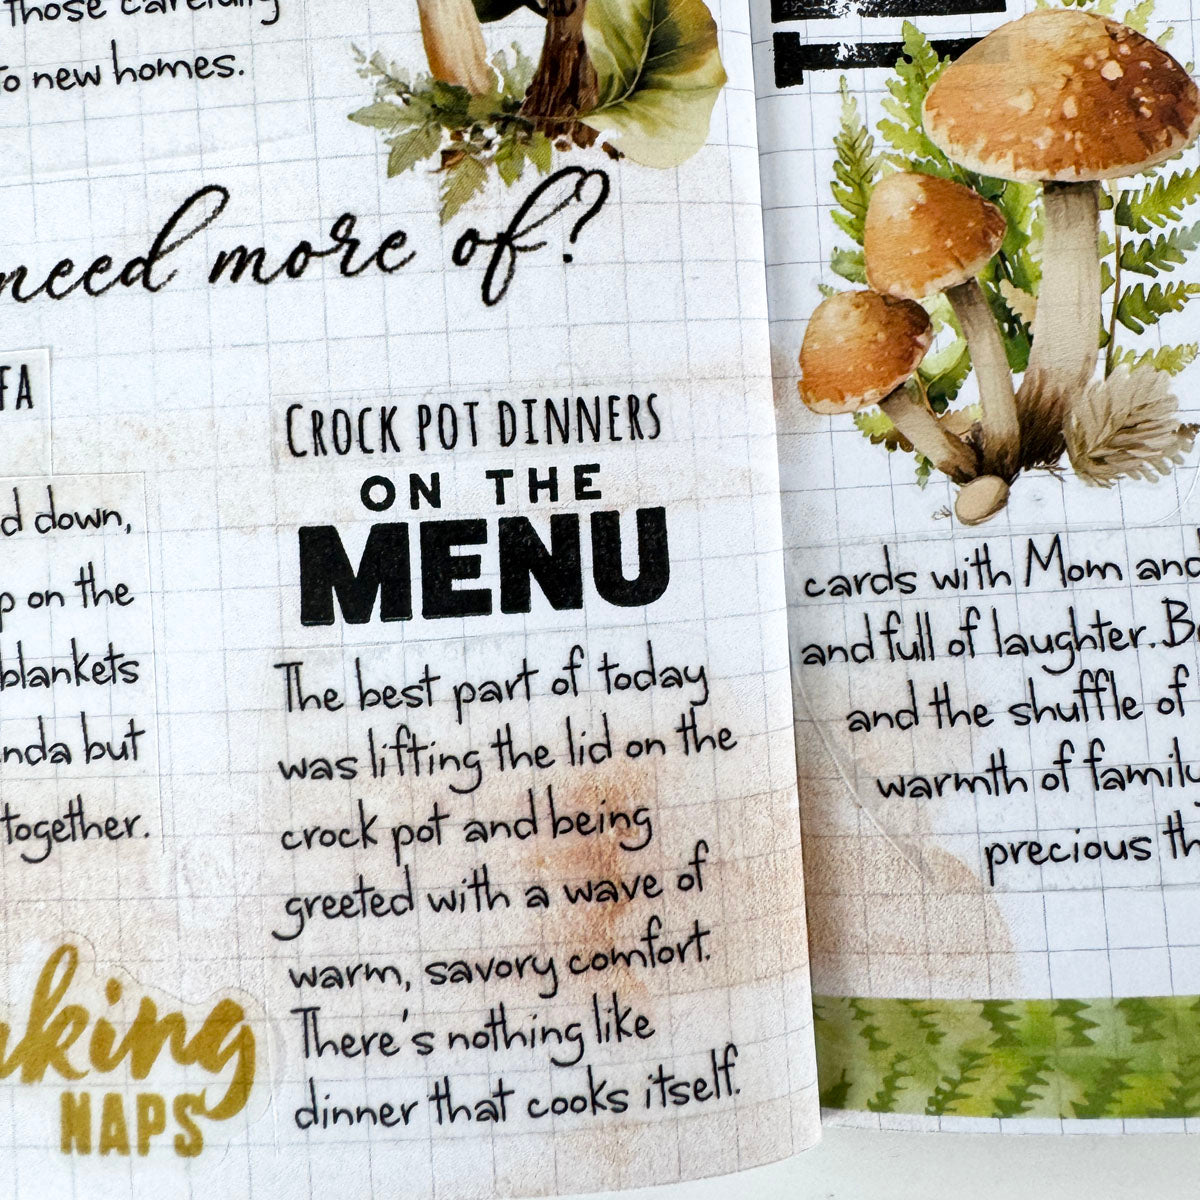 Those carefully
to new homes.
need more of?
FA
d down,
p on the
blankets
nda but
together.
king
NAPS
CROCK POT DINNERS
ON THE
MENU
The best part of today
was lifting the lid on the
crock pot and being
greeted with a wave of
warm, savory comfort.
There's nothing like
dinner that cooks itself.
cards with Mom and
and full of laughter. B
and the shuffle of
warmth of family
precious th